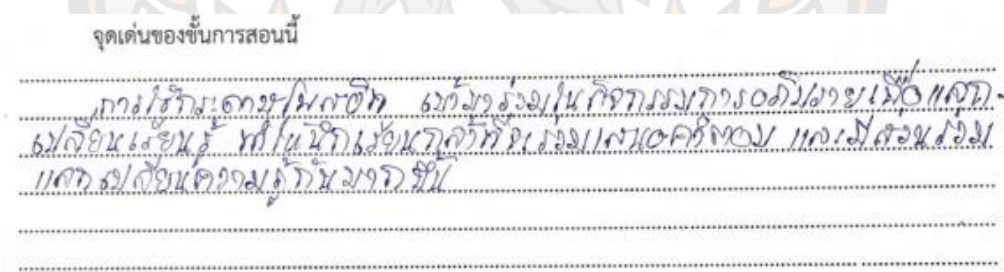 จุดเด่นของขั้นการสอนนี้
การใช้กระดาษโพสอิท เข้ามาร่วมในกิจกรรมการอภิปรายเพื่อแลก-
เปลี่ยนเรียนรู้ ทำให้นักเรียนกล้าที่จะร่วมเสนอคำตอบ และมีส่วนร่วม
แลกเปลี่ยนความรู้กันมากขึ้น